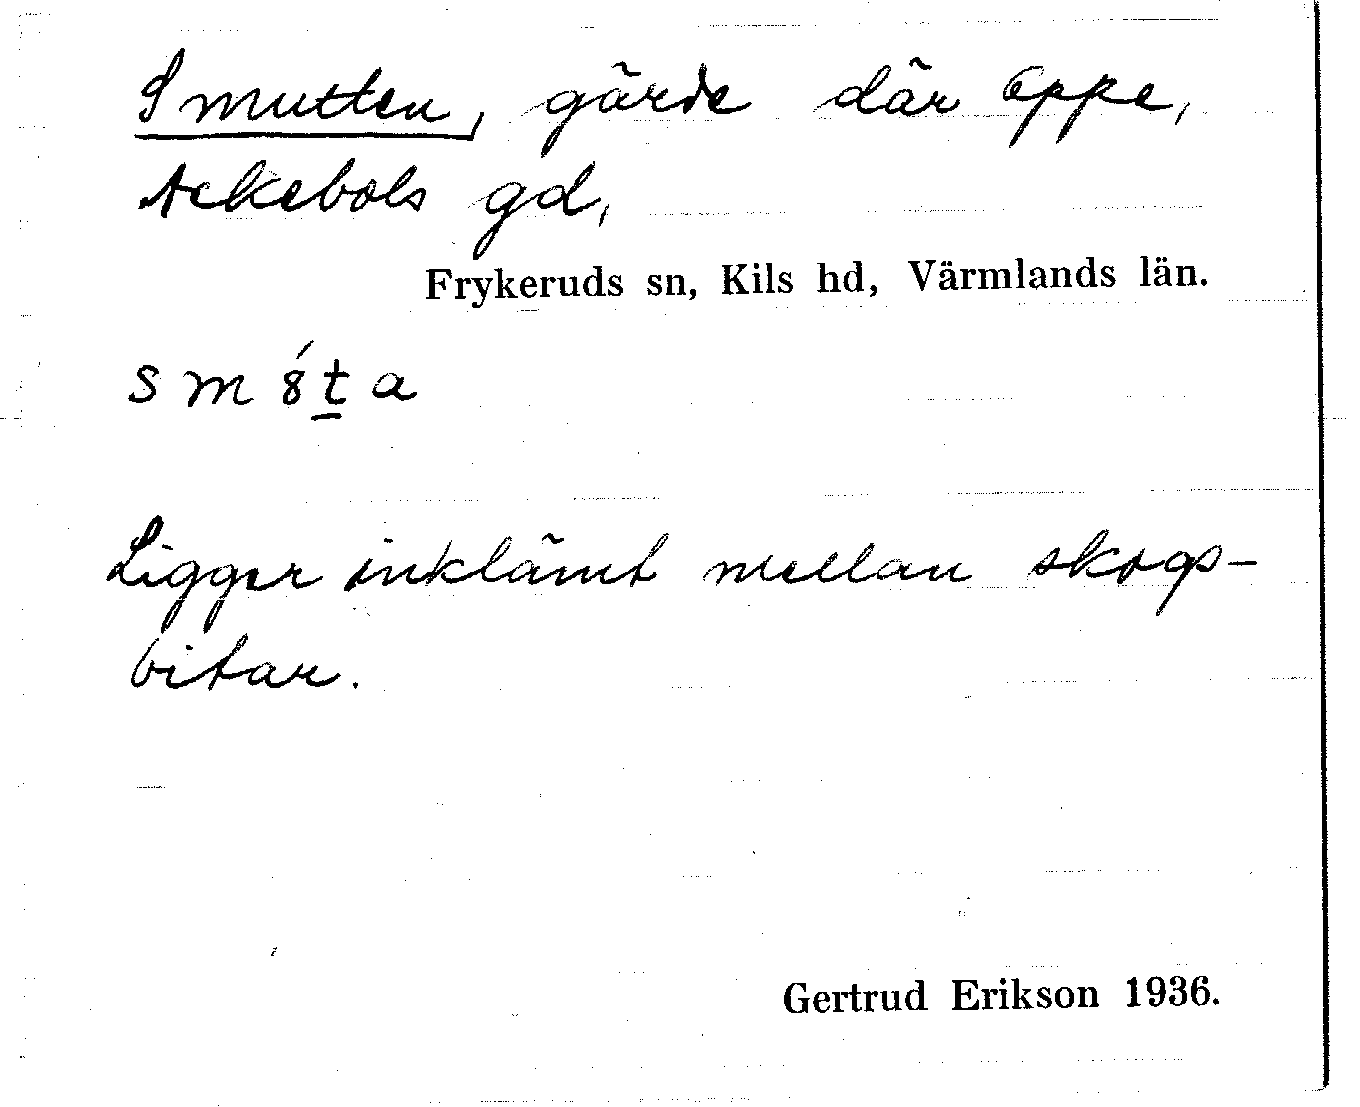 Smutten, gärde där oppe,
Ackebols gd,
Frykeruds sn, Kils hd, Värmlands län.
sm8́ṯa
Ligger inklämt mellan skogs-
bitar.
Gertrud Erikson 1936.